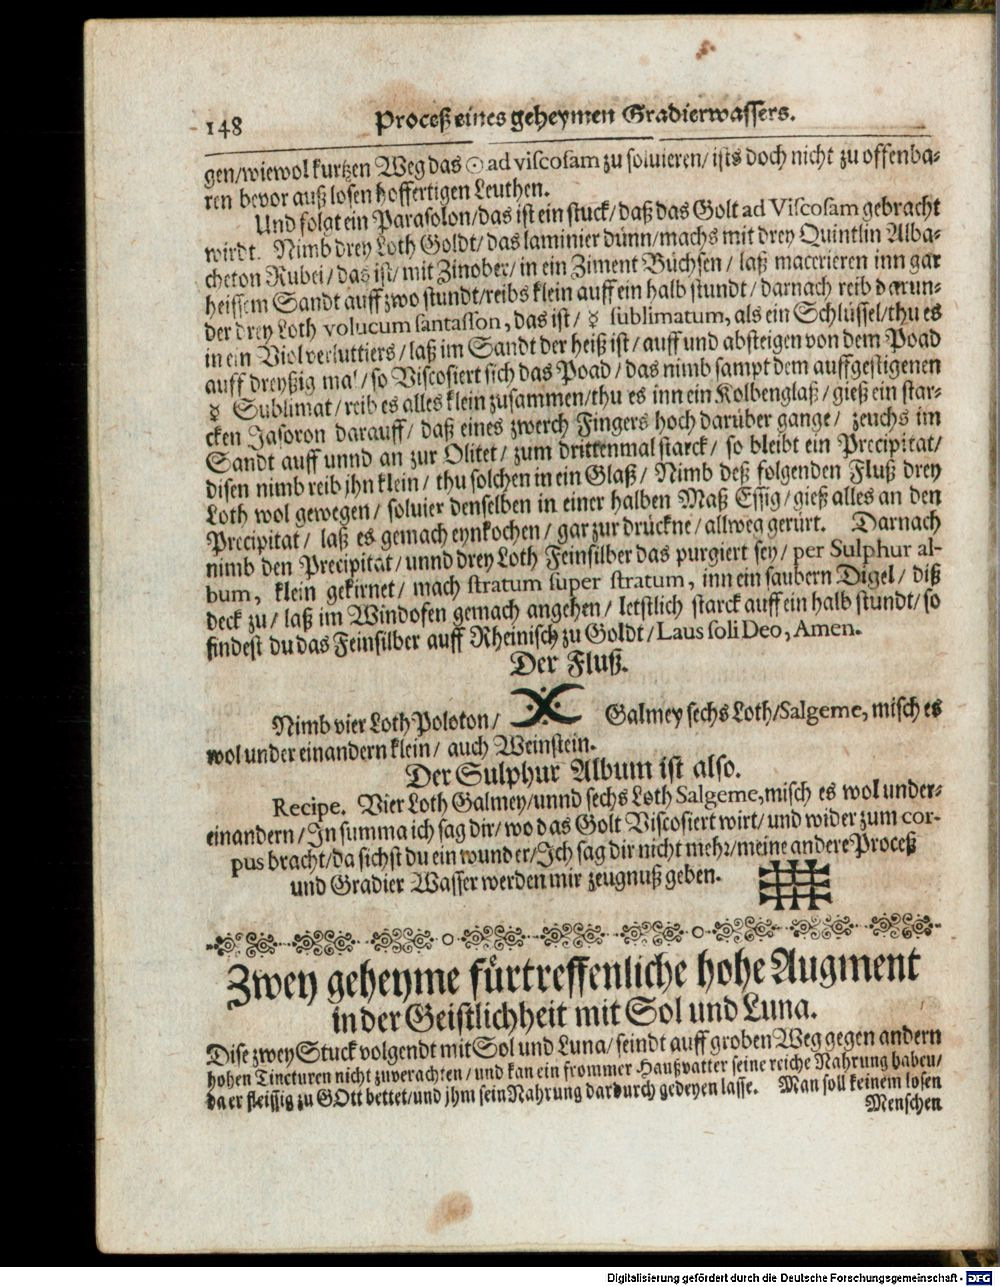 148 Proceß eines geheymen Gradierwassers.
gen/wiewol kurtzen Weg das ☉ ad viscosam zu soluieren/ ists doch nicht zu offenba-
ren bevor auß losen hoffertigen Leuthen.
Und folgt ein Parasolon/das ist ein stuck/daß das Golt ad Viscosam gebracht
wirdt. Nimb drey Loth Goldt/das laminier dünn/machs mit drey Quintlin Alba-
cheton Rubei/das ist/ mit Zinober/in ein Ziment Büchsen/ laß macerieren inn gar
heissem Sandt auff zwo stundt/reibs klein auff ein halb stundt/darnach reib darun-
der drey Loth volucum santasson, das ist/ ☿ sublimatum, als ein Schlüssel/thu es
in ein Viol verluttiers/laß im Sandt der heiß ist/auff und absteigen von dem Poad
auff dreyßig mal/so Viscosiert sich das Poad/das nimb sampt dem auffgestigenen
☿ Sublimat/reib es alles klein zusammen/thu es inn ein Kolbenglaß/gieß ein star-
cken Jasoron darauff/ daß eines zwerch Fingers hoch darüber gange/ zeuchs im
Sandt auff unnd an zur Olitet/ zum drittenmal starck/ so bleibt ein Precipitat/
disen nimb reib jhn klein/ thu solchen in ein Glaß/ Nimb deß folgenden Fluß drey
Loth wol gewegen/ soluier denselben in einer halben Maß Essig/gieß alles an den
Precipitat/ laß es gemach eynkochen/gar zur drückne/allweg gerürt. Darnach
nimb den Precipitat/unnd drey Loth Feinsilber das purgiert sey/ per Sulphur al-
bum, klein gekirnet/ mach stratum super stratum, inn ein saubern Digel/ diß
deck zu/ laß im Windofen gemach angehen/ letstlich starck auff ein halb stundt/so
findest du das Feinsilber auff Rheinisch zu Goldt/Laus soli Deo, Amen.
Der Fluß.
Nimb vier Loth Poloton/ Galmey sechs Loth/Salgeme, misch es
wol under einandern klein/ auch Weinstein.
Der Sulphur Album ist also.
Recipe. Vier Loth Galmey/unnd sechs Loth Salgeme, misch es wol under-
einandern/In summa ich sag dir/wo das Golt Viscosiert wirt/und wider zum cor-
pus bracht/da sichst du ein wunder/Ich sag dir nicht mehr/meine andere Proceß
und Gradier Wasser werden mir zeugnuß geben.
Zwey geheyme fürtreffenliche hohe Augment
in der Geistlichheit mit Sol und Luna.
Dise zwey Stuck volgendt mit Sol und Luna/seindt auff groben Weg gegen andern
hohen Tincturen nicht zuverachten/und kan ein frommer Haußvatter seine reiche Nahrung haben/
da er fleissig zu GOtt bettet/und jhm sein Nahrung dardurch gedeyen lasse. Man soll keinem losen
Menschen
Digitalisierung gefördert durch die Deutsche Forschungsgemeinschaft - DFG